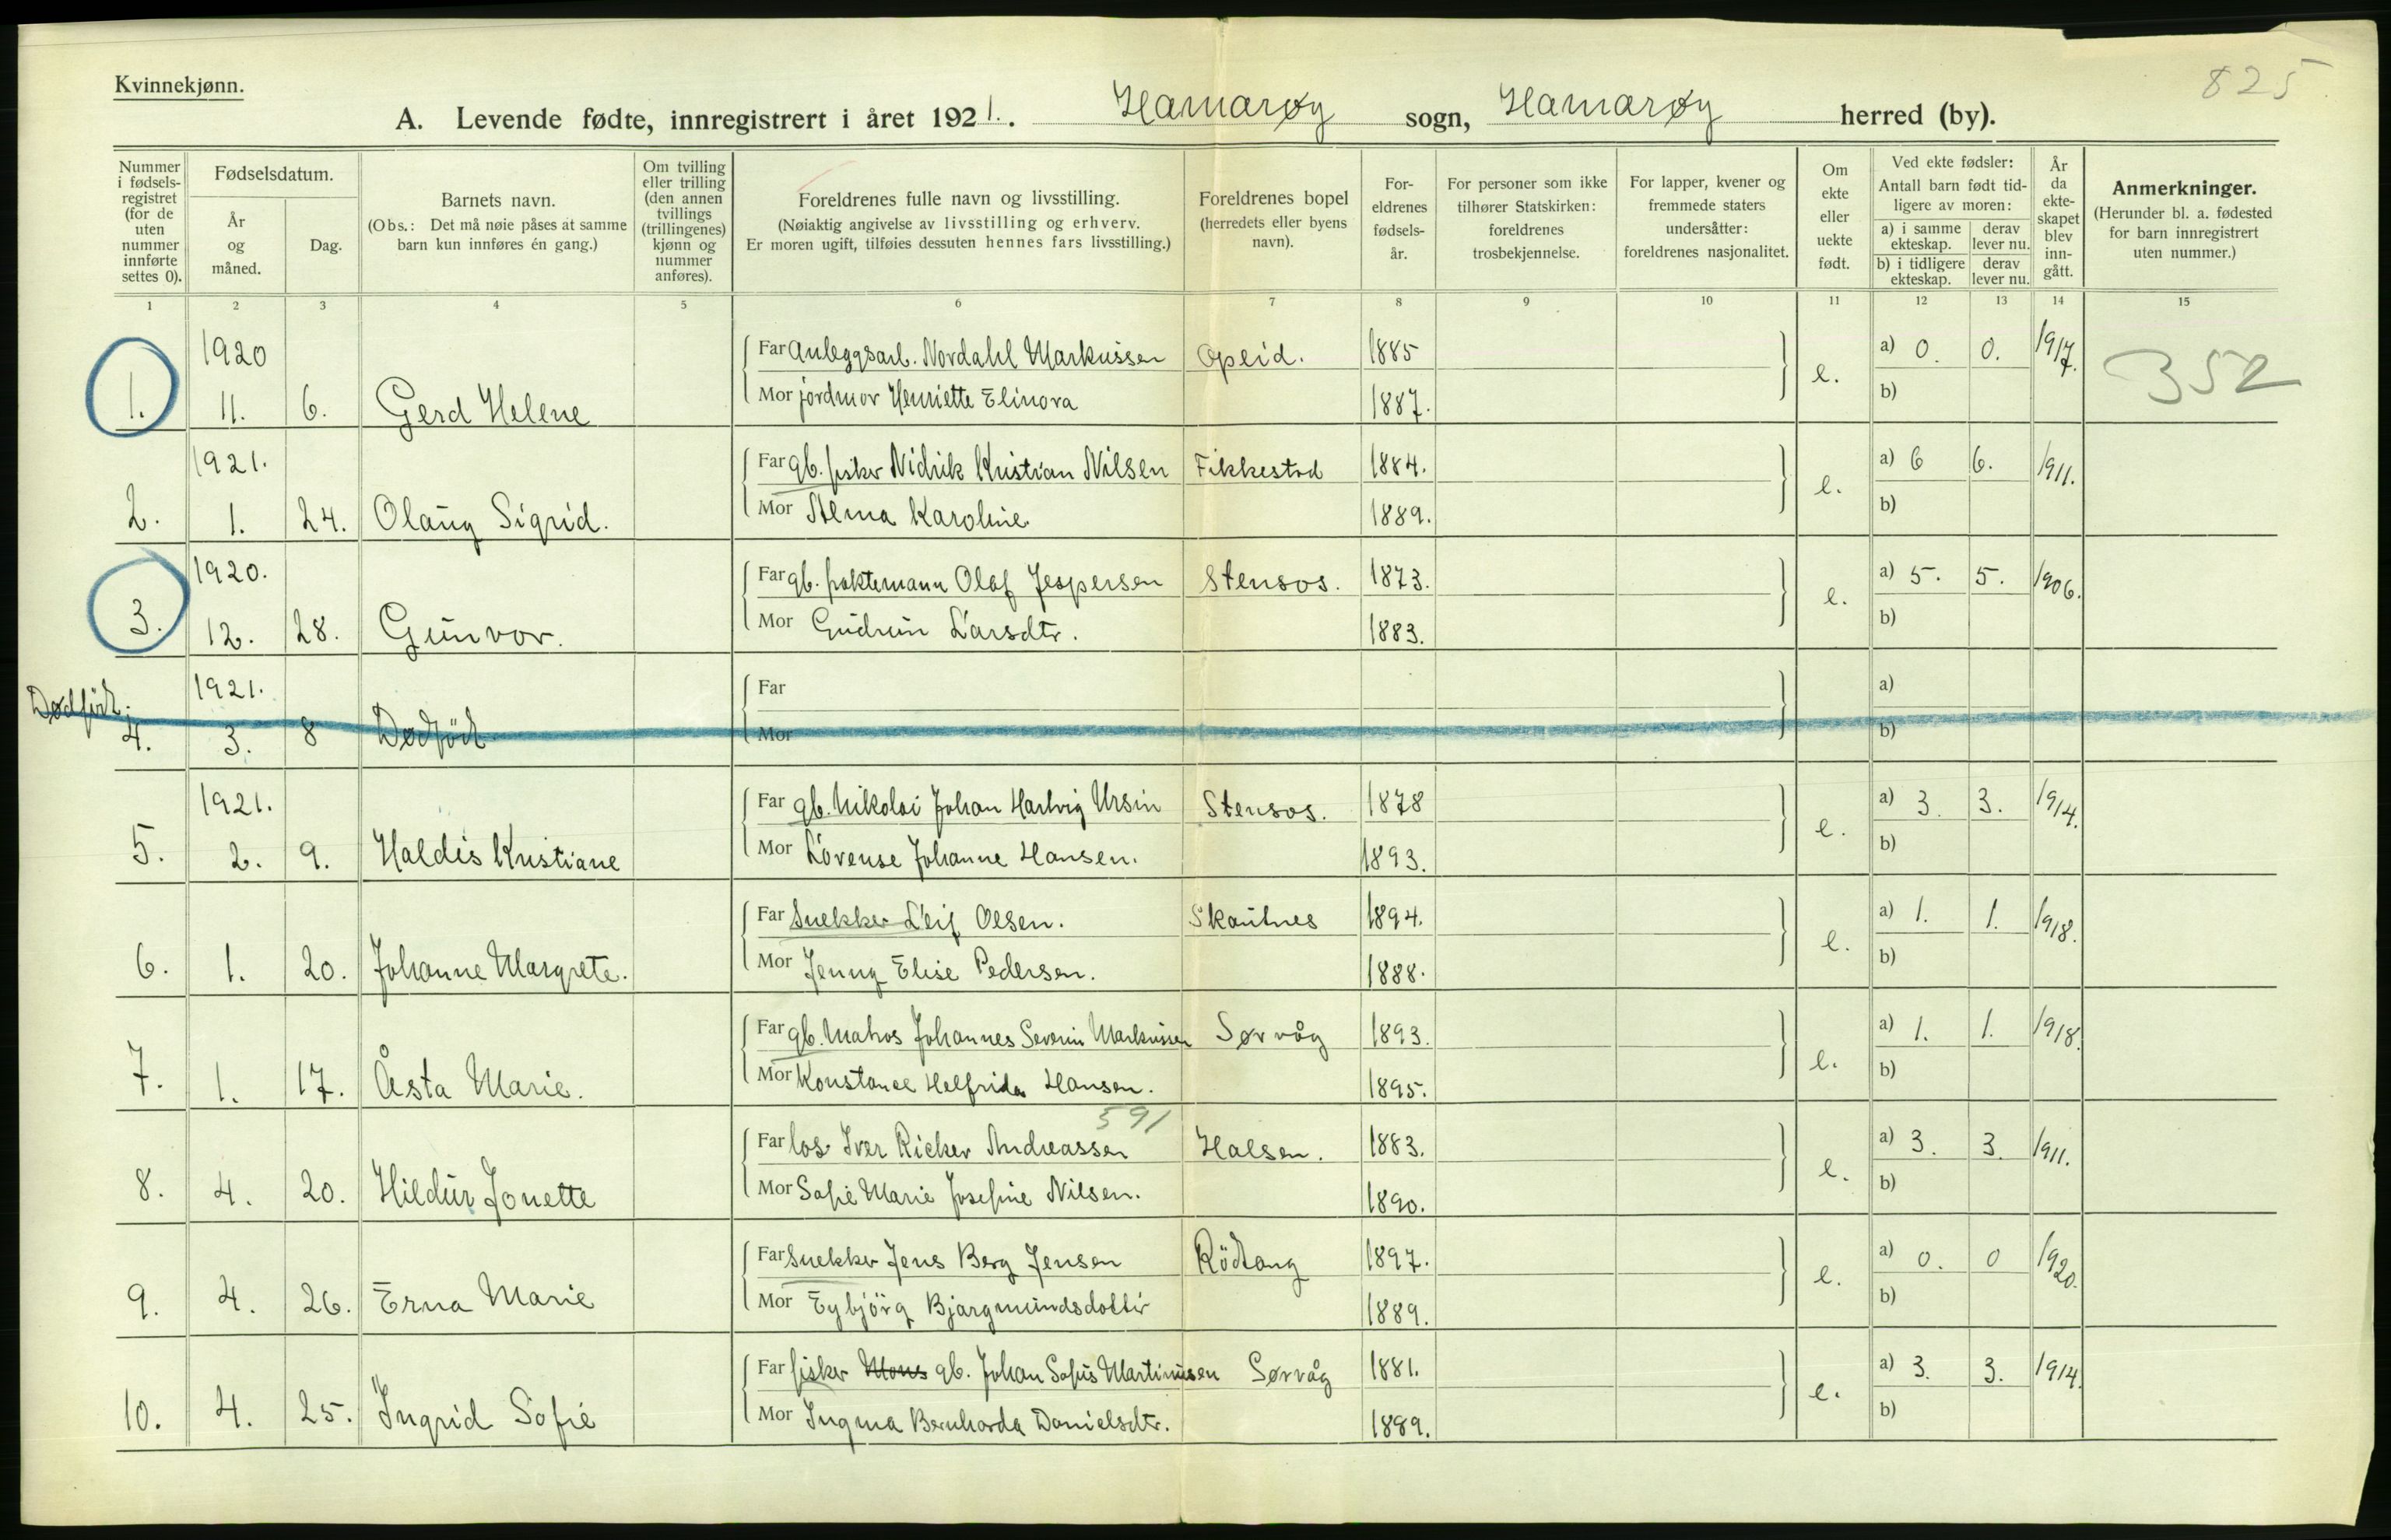 825
Kvinnekjønn.
A. Levende fødte, innregistrert i året 1921. Hamarøy sogn, Hamarøy herred (by).
Nummer i fødsels-registret (for de uten nummer innførte settes 0).
Fødselsdatum.
År og måned.
Dag.
Barnets navn.
(Obs.: Det må nøie påses at samme barn kun innføres én gang.)
Om tvilling eller trilling (den annen tvillings (trillingenes) kjønn og nummer anføres).
Foreldrenes fulle navn og livsstilling.
(Nøiaktig angivelse av livsstilling og erhverv. Er moren ugift, tilføies dessuten hennes fars livsstilling.)
Foreldrenes bopel (herredets eller byens navn).
For-eldrenes fødsels-år.
For personer som ikke tilhører Statskirken: foreldrenes trosbekjennelse.
For lapper, kvener og fremmede staters undersåtter: foreldrenes nasjonalitet.
Om ekte eller uekte født.
Ved ekte fødsler: Antall barn født tid-ligere av moren:
a) i samme ekteskap. derav lever nu.
b) i tidligere ekteskap. derav lever nu.
År da ekte-skapet blev inn-gått.
Anmerkninger.
(Herunder bl. a. fødested for barn innregistrert uten nummer.)
1 2 3 4 5 6 7 8 9 10 11 12 13 14 15
1920 Far Anleggsarb. Nordahl Markussen Opeid. 1885 a) 0. 0. 1917. 352
1. 11. 6. Gerd Helene Mor jordmor Henriette Elinora 1887. e. b)
1921. Far gb. fisker Nidrik Kristian Nilsen Fikkestad 1884. a) 6 6. 1911.
2. 1. 24. Olaug Sigrid. Mor Alma Karoline 1889. e. b)
1920. Far gb. fraktemann Olaf Jespersen Stensos. 1873. a) 5. 5. 1906.
3. 12. 28. Gunvor. Mor Gudrun Larsdtr. 1883. e. b)
Dødfødt. 1921. Far a)
4. 3. 8 Dødfödt Mor b)
1921. Far gb. Nikolai Johan Hartvig Ursin Stensos. 1878 a) 3. 3. 1914.
5. 2. 9. Haldis Kristiane Mor Lovense Johanne Hansen. 1893. e. b)
Far Snekker Leif Olsen. Skautnes 1894. a) 1. 1. 1918.
6. 1. 20. Johanne Margrete. Mor Jenny Elise Pedersen. 1888. e. b)
Far gb. matros Johannes Severin Markussen Sørvåg 1893. a) 1. 1. 1918.
7. 1. 17. Åsta Marie. Mor Konstance Helfrida Hansen. 1895. e. b)
591
Far los Iver Ricker Andreassen Halsen. 1883. a) 3. 3. 1911.
8. 4. 20. Hildur Jonette Mor Sofie Marie Josefine Nilsen. 1890. e. b)
Far Snekker Jens Berg Jensen Rödtang 1897. a) 0. 0 1920.
9. 4. 26. Erna Marie Mor Eybjörg Bjargmundsdottir 1889. e. b)
Far fisker gb. Johan Sofus Martinusen Sørvåg 1881. a) 3. 3. 1914.
10. 4. 25. Ingrid Sofie Mor Ingma Bernharda Danielsdtr. 1889. e. b)